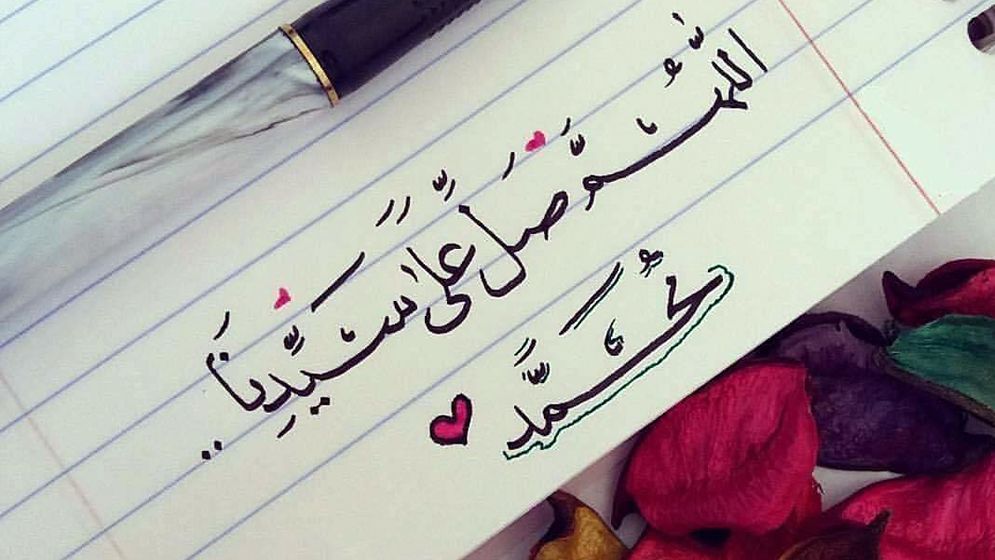 اللّٰهُمَّ صَلِّ عَلَىٰ سَيِّدِنَا..
مُحَمَّدٍ